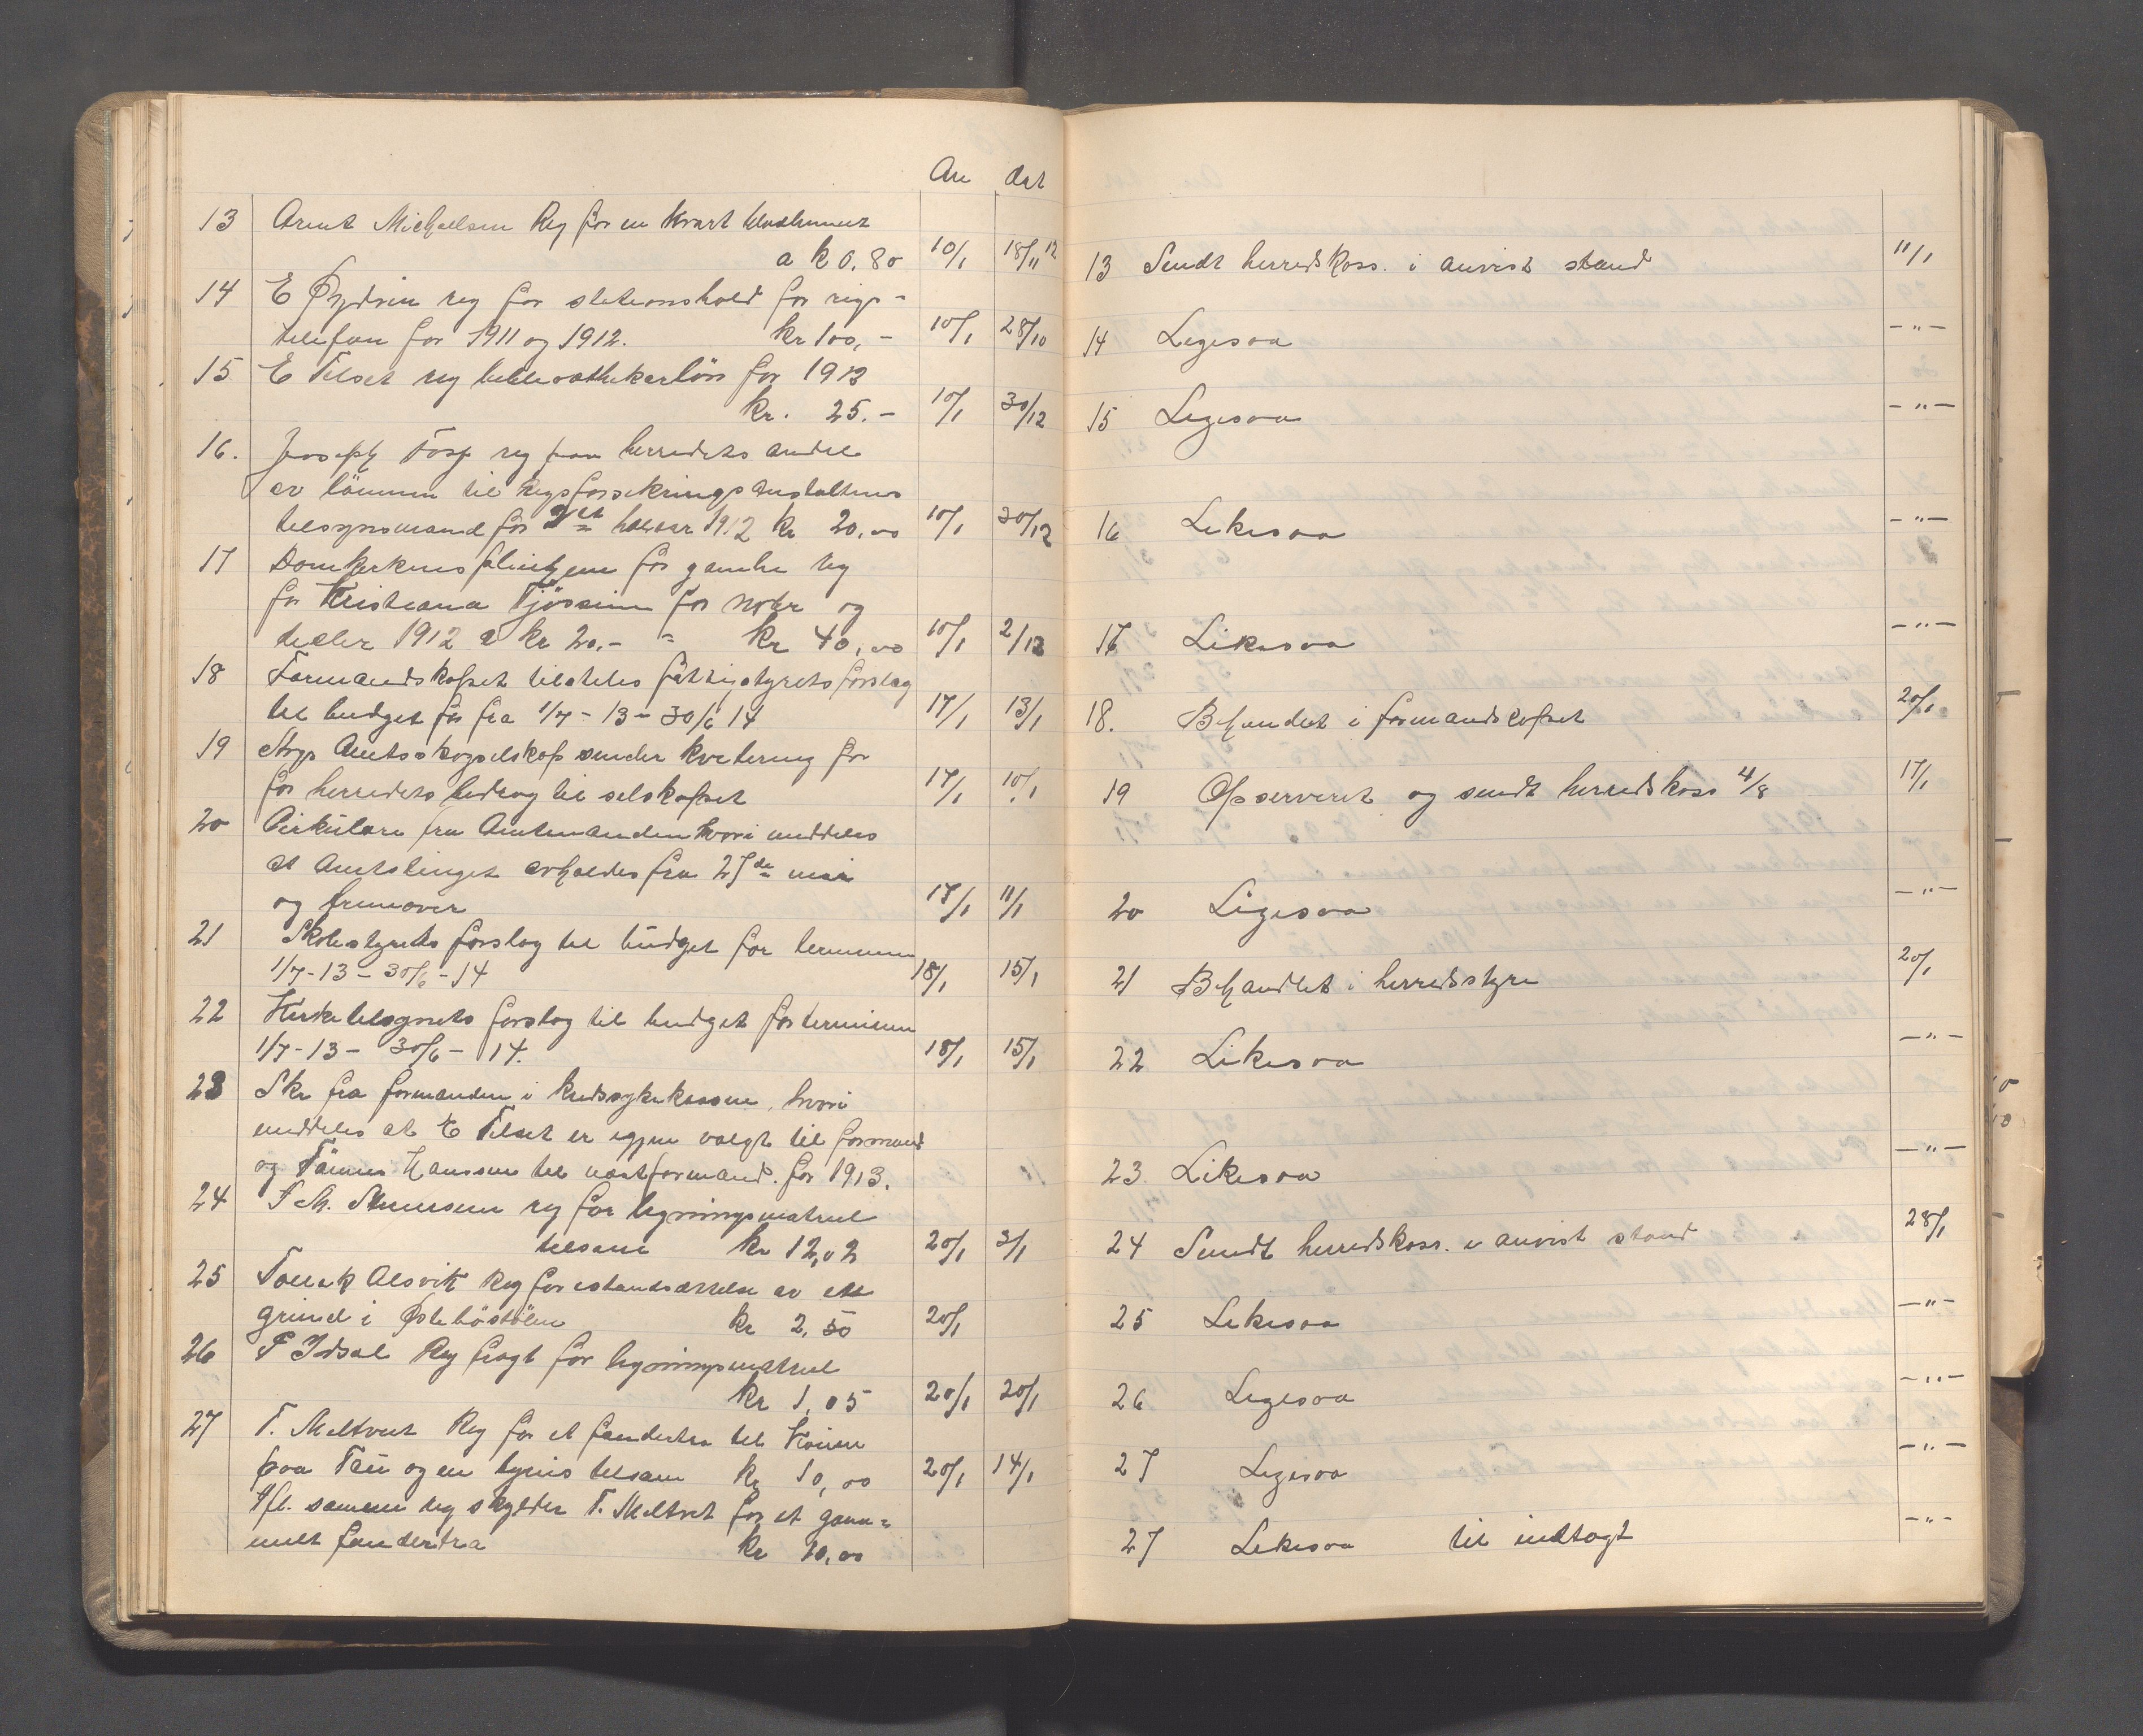 An dat
13 Arent Michaelsen Reg for en kvart
a k 0,80 10/1 18/11 12
14 E Frydvin reg for stationshold for rigs-
telefon for 1911 og 1912. kr 100,- 10/1 28/10
15 E Tilset reg bibliothekarløn for 1912
kr. 25.- 10/1 30/12
16. Joseph Tøsse reg paa herredets andel
av lønnen til Rigsforsikringsanstaltens
tilsynsmand for 2det halvaar 1912 kr 20,00 10/1 30/12
17 Domkirkens pleiehjem for gamle reg
for Kristiana Tjøssem for novbr og
decbr 1912 a kr 20.- = kr 40,00 10/1 2/12
18 Formandskapet tilstiles fattigstyrets forslag
til budget for fra 1/7-13-30/6 14 17/1 13/1
19 Stvgs Amts skogselskap sender kvitering for
for herredets bidrag til selskapet 17/1 10/1
20 Cirkulære fra Amtmanden hvori meddeles
at Amtstinget avholdes fra 27de mai
og fremover 17/1 11/1
21 Skolestyrets forslag til budget for terminen
1/7-13-30/6-14 18/1 15/1
22 Kirketilsynets forslag til budget for terminen
1/7-13- 30/6- 14. 18/1 15/1
23 Skr fra formanden i kredssykekassen, hvori
meddeles at E Tilset er igjen valgt til formand
og Tønnes Hanssen til næstformand. for 1913.
24 reg for ligningsmatriel
tilsam kr 12,02 20/1 3/1
25 Tollak Alsvik Reg for istandsættelse av ett
grind i Østebøstølen kr 2,50 20/1
26 P Idsal Reg fragt for ligningsmatriel
kr 1,05 20/1 20/1
27 T. Meltveit Reg for et fændertræ til Kaien
paa Tau og en tilsam kr 10,00 20/1 14/1
Ifl. samme reg skylder T. Meltveit for et gam=
melt fændertræ kr 10,00
13 Sendt herredskass. i anvist stand 11/1
14 Legesaa -"-
15 Legesaa -"-
16 Likesaa -"-
17 Likesaa -"-
18. Behandlet i formandskapet 20/1
19 Opserveret og sendt herredskass 4/8 17/1
20 Ligesaa -"-
21 Behandlet i herredsstyre 20/1
22 Likesaa -"-
23 Likesaa -"-
24 Sendt herredskass. i anvist stand 28/1
25 Likesaa -"-
26 Legesaa -"-
27 Legesaa -"-
27 Likesaa til indtægt -"-